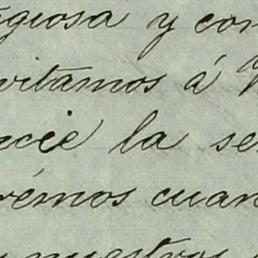 igiosa y con
vitamos á V
ncie la se
rémos cuan
y nuestros